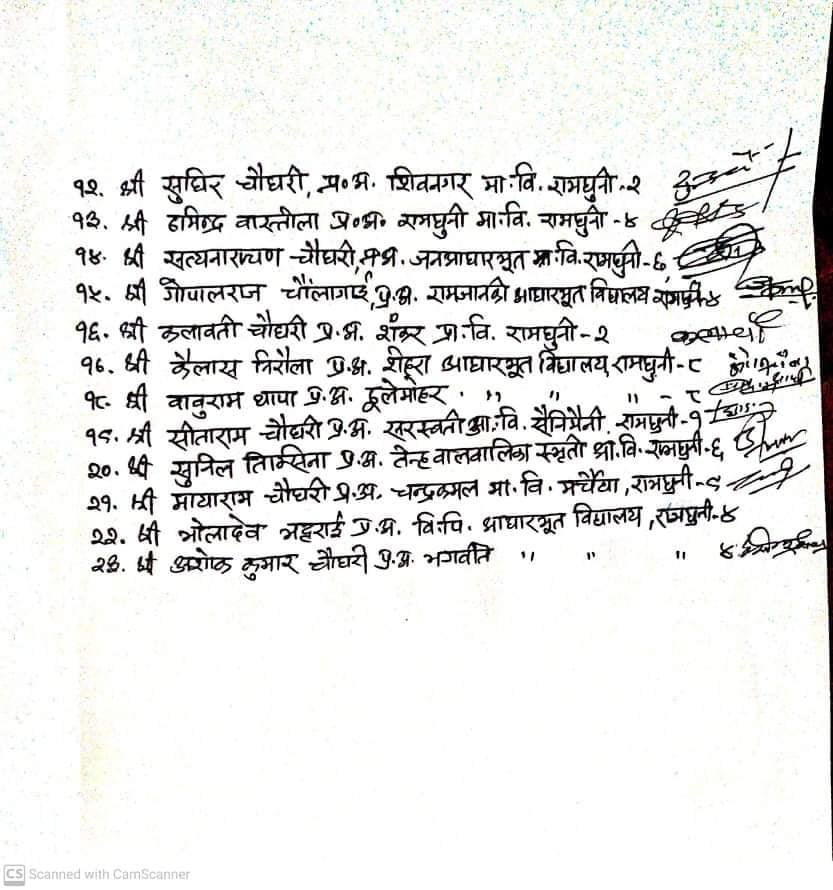 १२. श्री सुधिर चौधरी, प्र॰अ. शिवनगर मा.वि. रामधुनी-२
१३. श्री हमिन्द्र वास्तोला प्र॰अ॰ रामधुनी मा.वि. रामधुनी-४
१४. श्री सत्यनारायण चौधरी, प्र.अ. जनआधारभूत वि. रामधुनी-६
१५. श्री गोपालराज चौंलागाईं, प्र.अ. रामजानकी आधारभूत विद्यालय रामधुनी-४
१६. श्री कलावती चौधरी प्र.अ. शंकर प्रा.वि. रामधुनी-२ कलावती
१७. श्री कैलास निरौला प्र.अ. शेहरा आधारभूत विद्यालय, रामधुनी-८
१८. श्री वावुराम थापा प्र.अ. ठूलेमोहर " " " -८
१९. श्री सीताराम चौधरी प्र.अ. सरस्वती आ.वि. सैनिमैनी, रामधुनी-१
२०. श्री सुनिल तिम्सिना प्र.अ. वालवालिका स्मृती प्रा.वि. रामधुनी-६
२१. श्री मायाराम चौधरी प्र.अ. चन्द्रकमल मा.वि. मर्चैया, रामधुनी-९
२२. श्री भोलादेव भट्टराई प्र.अ. वि.पि. आधारभूत विद्यालय, रामधुनी-४
२३. श्री अशोक कुमार चौधरी प्र.अ. भगवति " " " ४
CS Scanned with CamScanner